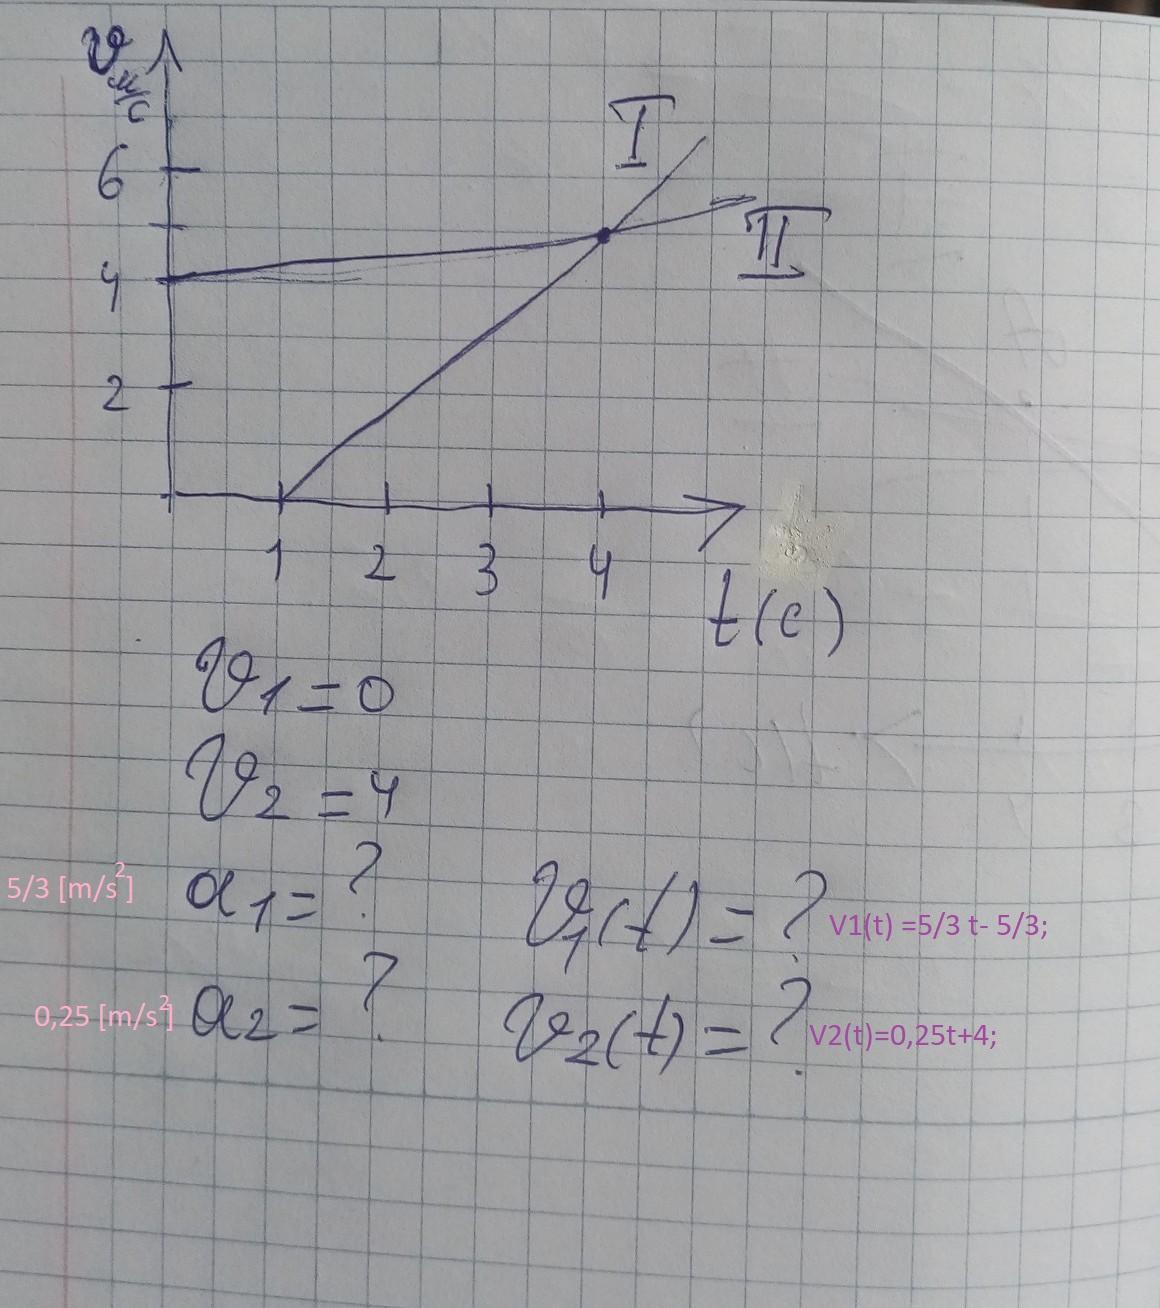 υ м/с
I
6
II
4
2
1 2 3 4
t(c)
υ1 = 0
υ2 = 4
5/3 [m/s²] a1 = ? υ1(t) = ? V1(t) =5/3 t- 5/3;
0,25 [m/s²] a2 = ? υ2(t) = ? V2(t)=0,25t+4;